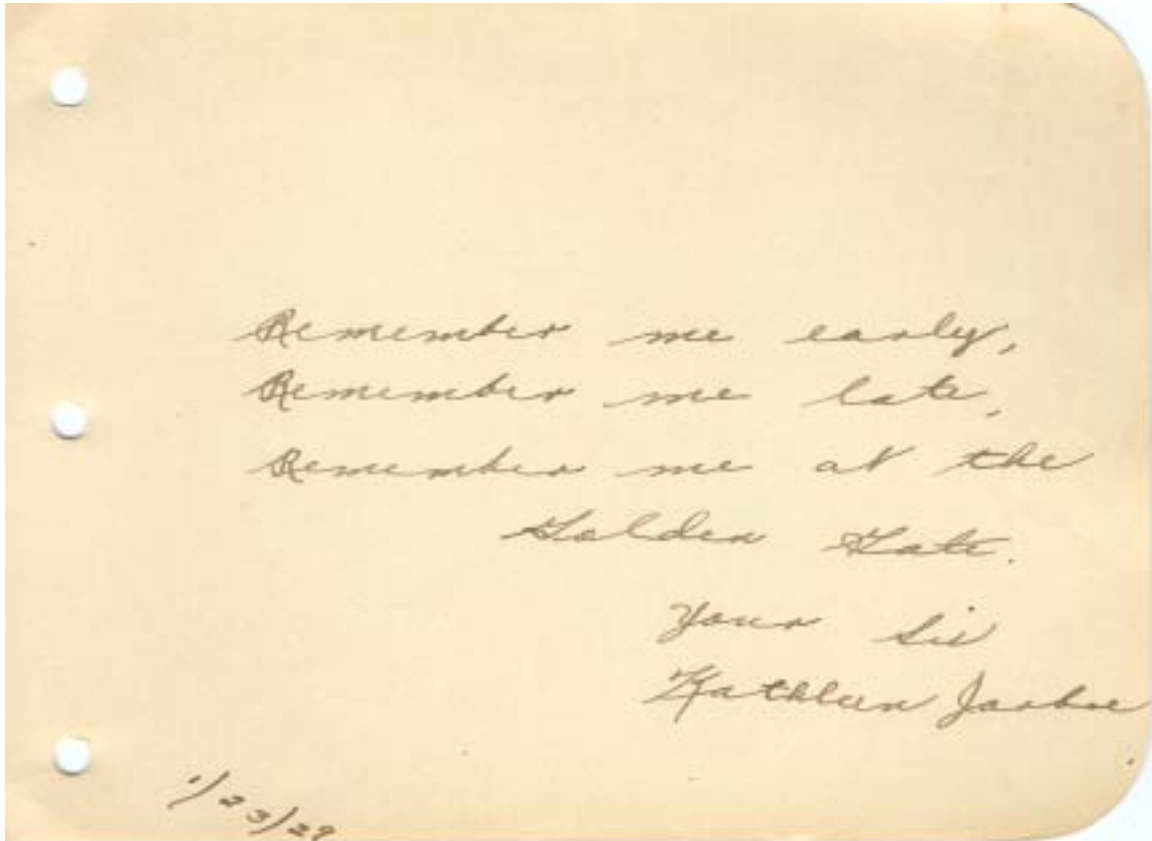 Remember me early,
Remember me late,
Remember me at the
Golden Gate.
Your Sis
Kathleen Jarboe
1/23/29